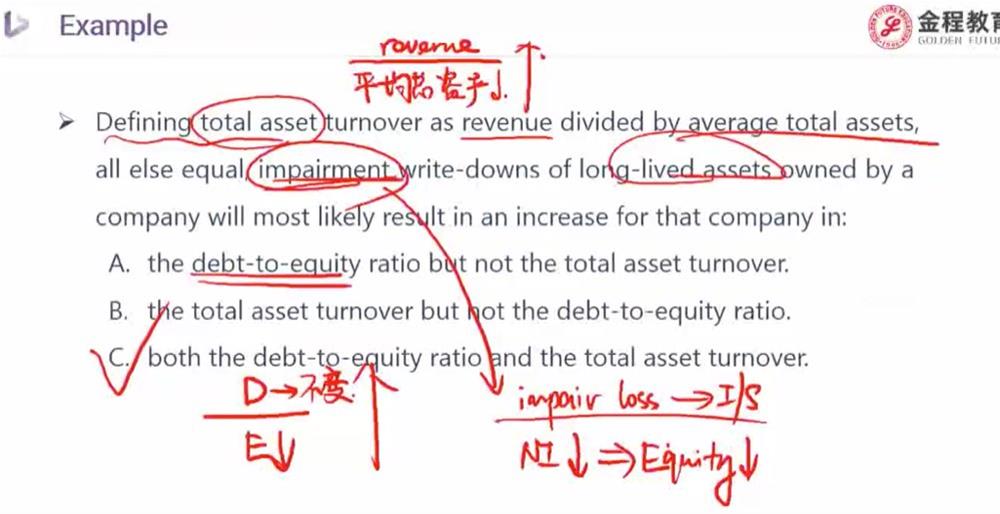 Example
金程教育
GOLDEN FUTU
revenue
平均总资产↓
↑
➤ Defining total asset turnover as revenue divided by average total assets,
all else equal impairment write-downs of long-lived assets owned by a
company will most likely result in an increase for that company in:
A. the debt-to-equity ratio but not the total asset turnover.
B. the total asset turnover but not the debt-to-equity ratio.
C. both the debt-to-equity ratio and the total asset turnover.
D→不变
E↓
↑
impair loss →I/S
NI↓ ⇒ Equity↓